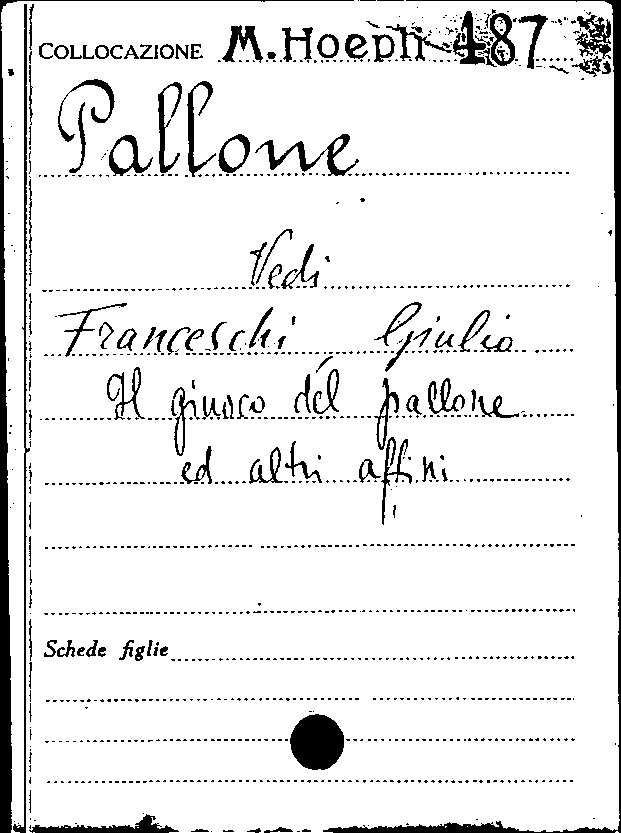 COLLOCAZIONE M. Hoepli 487
Pallone
Vedi
Franceschi Giulio
Il giuoco del pallone
ed altri affini
Schede figlie